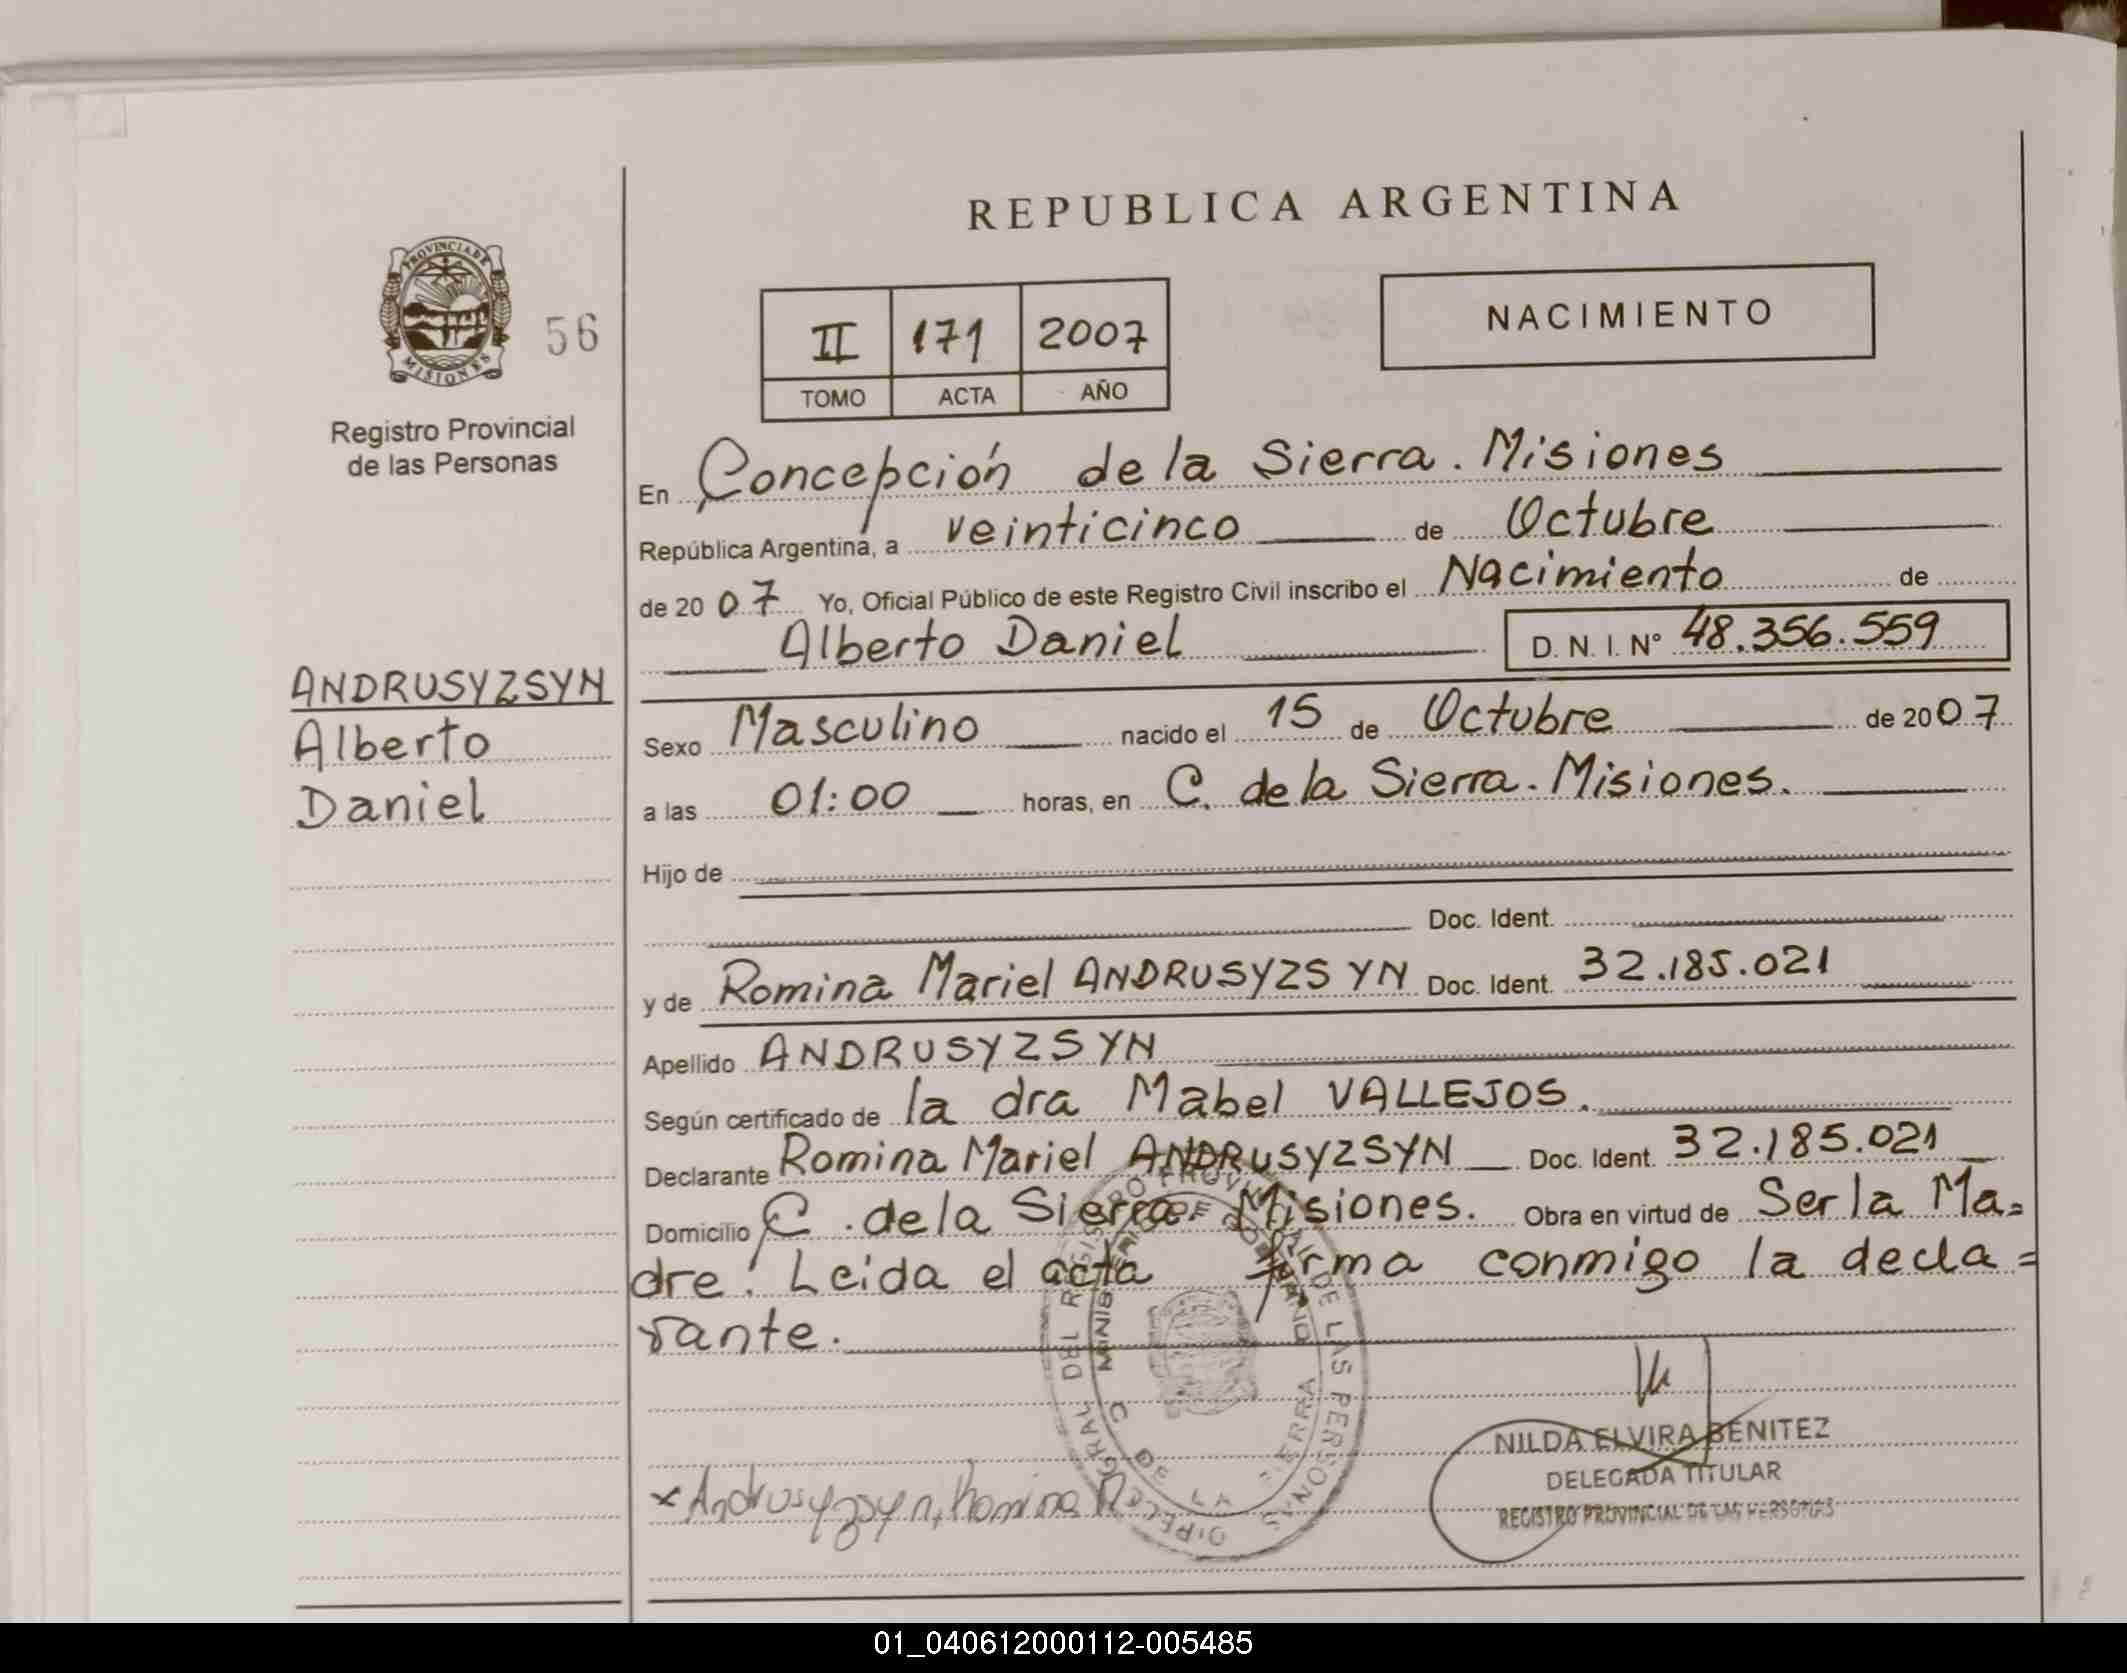 REPUBLICA ARGENTINA
PROVINCIA DE
MISIONES
56
Registro Provincial
de las Personas
II 171 2007
TOMO ACTA AÑO
NACIMIENTO
En Concepción de la Sierra. Misiones
República Argentina, a veinticinco de Octubre
de 2007 Yo, Oficial Público de este Registro Civil inscribo el Nacimiento de
Alberto Daniel D. N. I. N° 48.356.559
ANDRUSYZSYN
Alberto
Daniel
Sexo Masculino nacido el 15 de Octubre de 2007
a las 01:00 horas, en C. de la Sierra. Misiones.
Hijo de
Doc. Ident.
y de Romina Mariel ANDRUSYZSYN Doc. Ident. 32.185.021
Apellido ANDRUSYZSYN
Según certificado de la dra Mabel VALLEJOS.
Declarante Romina Mariel ANDRUSYZSYN Doc. Ident. 32.185.021
Domicilio C. de la Sierra Misiones. Obra en virtud de Ser la Ma=
dre. Leida el acta firma conmigo la decla=
rante.
x Andrusyzsyn, Romina
NILDA ELVIRA BENITEZ
DELEGADA TITULAR
REGISTRO PROVINCIAL DE LAS PERSONAS
01_040612000112-005485